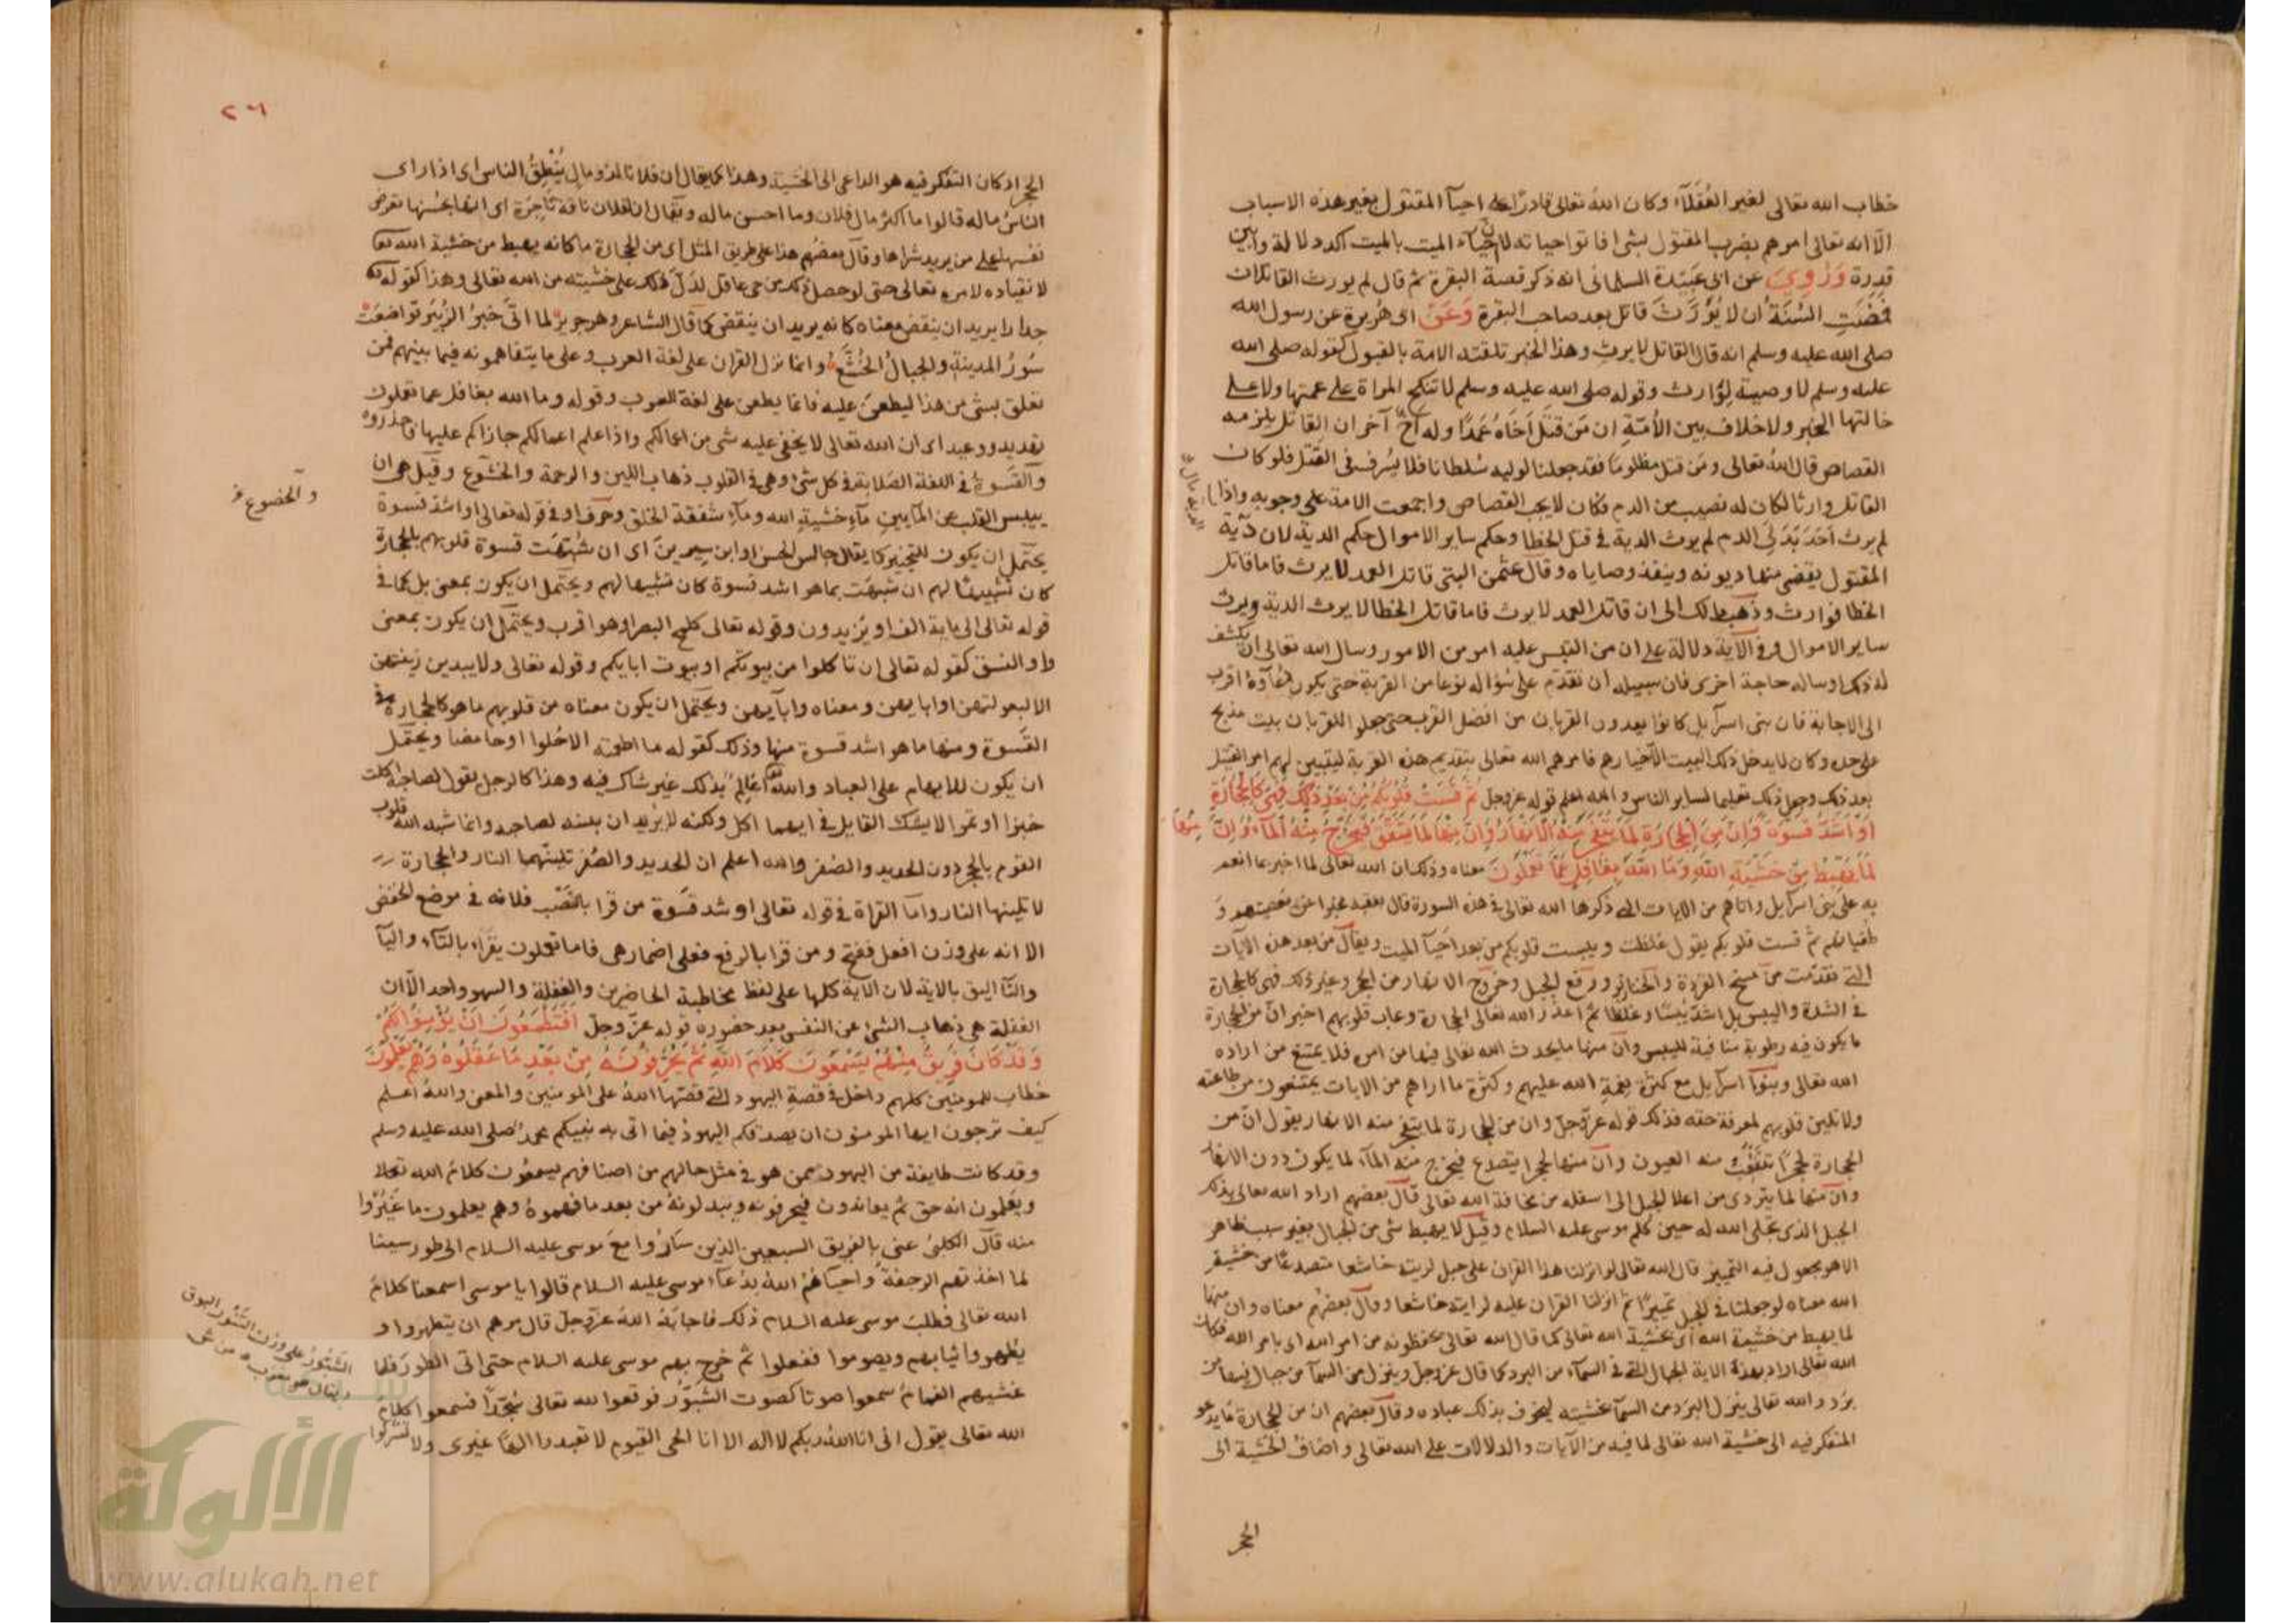 خطاب الله تعالى لغير العُقَلَآء وكان اللهُ تعالى قادرًا على احيآ المقتول بغير هذه الاسباب
الّا انه تعالى امرهم بضرب المقتول بشى افاتوا حياته لان احيآء الميت بالميت اكد دلالة وابين
قدرة وَرُوِيَ عن ابى عَبِيْدة السلمانى انه ذكر قصة البقرة ثم قال لم يورث القاتلان
فَمَضَتِ السُنّةُ ان لا يُوَرَّثَ قاتل بعد صاحب البقرة وَعَنْ ابى هُريرة عن رسول الله
صلى الله عليه وسلم انه قال القاتل لا يرث وهذا الخبر تلقته الامة بالقبول كقوله صلى الله
عليه وسلم لا وصية لِوارث وقوله صلى الله عليه وسلم لا تنكح المراة على عمتها ولا على
خالتها الخبر ولا خلاف بين الأمّةِ ان مَن قتَل اَخَاهُ عَمدًا وله اخٌ آخر ان القاتل يلزمه
القصاص قال اللهُ تعالى ومَن قتل مظلومًا فقد جعلنا لوليه سُلطانا فلا يُسرف فى القتل فلو كان
القاتل وارثا لكان له نصيب من الدم فكان لا يجب القصاص واجمعت الامة على وجوبه واذا
لم يرث اَحَدٌ بَدَلَ الدم لم يرث الدية فى قتل الخطا وحكم ساير الاموال حكم الدية لان دية
المقتول يقضى منها ديونه وينفذ وصاياه وقال عثمن البتى قاتل العمد لا يرث فاما قاتل
الخطا فوارث وذهب مالك الى ان قاتل العمد لا يرث فاما قاتل الخطا لا يرث الدية ويرث
ساير الاموال وفى الآية دلالة على ان من التبس عليه امر من الامور وسال الله تعالى ان يكشف
له ذلك او ساله حاجة اخرى فان سبيله ان تقدّم على سُؤاله نوعا من القربة حتى يكون دُعآوهُ اقرب
الى الاجابة فان بنى اسرآيل كانوا يعدون القربان من افضل القرب حتى جعلوا للقربان بيت مذبح
على حده وكان لا يدخل ذلك البيت الّا خيارهم فامرهم الله تعالى بتقديم هذه القربة ليتبين لهم امر القتيل
بعد ذلك وجعل ذلك تعليما لساير الناس والله اعلم قوله عزوجل ثُمَّ قَسَتْ قُلُوبُكُمْ مِنْ بَعْدِ ذٰلِكَ فَهِىَ كَالْحِجَارَةِ
اَوْ اَشَدُّ قَسْوَةً وَاِنَّ مِنَ الْحِجَارَةِ لَمَا يَتَفَجَّرُ مِنْهُ الْاَنْهَارُ وَاِنَّ مِنْهَا لَمَا يَشَّقَّقُ فَيَخْرُجُ مِنْهُ الْمَآءُ وَاِنَّ مِنْهَا
لَمَا يَهْبِطُ مِنْ خَشْيَةِ اللّٰهِ وَمَا اللّٰهُ بِغَافِلٍ عَمَّا تَعْمَلُونَ معناه وذلك ان الله تعالى لما اخبر بما انعم
به على بنى اسرآيل واتاهم من الايات التى ذكرها الله تعالى فى هذه السورة قال بعقبه مخبرا عن معصيتهم و
طغيانهم ثم قست قلوبكم يقول غلظت ويبست قلوبكم من بعد اَحيآ الميت ويقال من بعد هذه الآيات
التى تقدّمت من مسخ القردة والخنازير ورفع الجبل وخروج الانهار من الحجر وغير ذلك فهى كالحجارة
فى الشدة واليبس بل اشدّ يُبسًا وغلظا ثم اعذر الله تعالى الحجارة وعاب قلوبهم اخبر انّ من الحجارة
ما يكون فيه رطوبة منافية لليبس وانّ منها ما يحدث الله تعالى فيها من امره فلا يمتنع من اراده
الله تعالى وبنوآ اسرآيل مع كثرة نعمة الله عليهم وكثرة ما اراهم من الايات يمتنعون من طاعته
ولا تلين قلوبهم لمعرفة حقه فذلك قوله عزوجل وان من الحجارة لما يتفجر منه الانهار يقول انّ من
الحجارة لحجرًا تتفجّرُ منه العيون وانّ منها لحجرا يتصدع فيخرج منه المآء لما يكون دون الانهار
وانّ منها لما يتردى من اعلا الجبل الى اسفله من مخافة الله تعالى قال بعضهم اراد الله تعالى بذلك
الجبل الذى تجلى الله له حين كلم موسى عليه السلام وقيل لا يهبط شى من الجبال بغير سبب ظاهر
الا هو مجعول فيه التمييز قال الله تعالى لو انزلنا هذا القران على جبل لرايته خاشعا متصدعًا من خشية
الله معناه لو جعلنا فى الجبل تمييزًا ثم انزلنا القران عليه لرايته خاشعا وقال بعضهم معناه وان منها
لما يهبط من خشية الله اى بخشية الله تعالى كما قال الله تعالى يحفظونه من امر الله اى بامر الله فكان
الله تعالى اراد بهذه الاية الجبال التى فى السمآء من البرد كما قال عز وجل وينزل من السمآ من جبال فيها من
بَرَد والله تعالى ينزل البَرَد من السمآ بخشيته ليخوف بذلك عباده وقال بعضهم ان من الحجارة ما يدعو
المتفكر فيه الى خشية الله تعالى لما فيه من الآيات والدلالات على الله تعالى واضاف الخشية الى
الحجر
٢٦
الحجر اذ كان التفكر فيه هو الداعى الى الخشية وهذا كما يقال ان فلانا لذو مالٍ يُنْطِقُ الناس اى اذا راى
الناسُ ماله قالوا ما اكثر مال فلان وما احسن ماله ويُقال ان لفلان ناقة تاجِرَة اى انها بحُسنها تعرض
نفسها على من يريد شراها وقال بعضُهم هذا على طريق المثل اى من الحجارة ما كانه يهبط من خشية الله تعا
لانقياده لامره تعالى حتى لو حصل ذلك من حى عاقل لَدَلّ ذلك على خشيته من الله تعالى وهذا كقوله
جدارا يريد ان ينقض معناه كانه يريد ان ينقض كما قال الشاعر وهو جرير لما اتَى خَبَرُ الزُبَيرِ تواضعَتْ
سُورُ المدينةِ والجبالُ الخُشَّعُ وانما نزل القران على لغة العرب وعلى ما يتفاهمونه فيما بينهم فمن
تعلق بشى من هذا ليطعنَ عليه فانما يطعن على لغة العرب وقوله وما الله بغافل عما تعملون
تهديد ووعيد اى ان الله تعالى لا يخفى عليه شى من اعمالكم واذا علم اعمالكم جازاكم عليها فاحذروه
والقَسوةُ فى اللغة الصَلابة فى كل شئ وهى فى القلوب ذهاب اللين والرحمة والخشوع وقيل هى ان
والخضوع
ييبس القلب عن المآيين مآءِ خشيةِ الله ومآءِ شفقة الخلق وحرف او فى قوله تعالى او اشد قسوة
يحتمل ان يكون للتخيير كما يقال جالس الحسن او ابن سِيرِينَ اى ان شَبّهْتَ قسوة قلوبهم بالحجارة
كان تشبيهًا لهم ان شبهْتَ بما هو اشد قسوة كان تشبيها لهم ويحتمل ان يكون بمعنى بل كما فى
قوله تعالى الى ماية الف او يزيدون وقوله تعالى كلمح البصر او هو اقرب ويحتمل ان يكون بمعنى
واو النسق كقوله تعالى ان تاكلوا من بيوتكم او بيوت ابايكم وقوله تعالى ولا يبدين زينتهن
الا لبعولتهن او ابايهن ومعناه وابآيهن ويحتمل ان يكون معناه من قلوبهم ما هو كالحجارة فى
القَسوة ومنها ما هو اشد قسوة منها وذلك كقوله ما اطعمته الا حُلوا او حامضا ويحتمل
ان يكون للابهام على العباد واللهُ تعالى عالِمٌ بذلك غير شاك فيه وهذا كالرجل يقول لصاحبه اكلت
خبزا او تمرا لا يشك القايل فى ايهما اكل ولكنه لا يُريد ان يبينه لصاحبه وانما شبه الله قلوب
القوم بالحجر دون الحديد والصُفر والله اعلم ان الحديد والصُفر تلينُهما النار والحجارة
لا تلينها النار وامّا القراة فى قوله تعالى او شد قَسْوَةً من قرا بالنَصْب فلانه فى موضع الخفض
الا انه على وزن افعل ففتح ومن قرا بالرفع فعلى اضمار هى فاما تعملون يقراء بالتآء واليآ
والتّا اليق بالاية لان الآية كلها على لفظ مخاطبة الحاضرين والغفلة والسهو واحد الّا ان
الغفلة هى ذهاب الشئ عن النفس بعد حضوره قوله عزّ وجلّ اَفَتَطْمَعُونَ اَنْ يُؤْمِنُوا لَكُمْ
وَقَدْ كَانَ فَرِيقٌ مِنْهُمْ يَسْمَعُونَ كَلَامَ اللّٰهِ ثُمَّ يُحَرِّفُونَهُ مِنْ بَعْدِ مَا عَقَلُوهُ وَهُمْ يَعْلَمُونَ
خطاب للمومنين كلهم داخل فى قصة اليهود التى قصّها اللهُ على المومنين والمعنى واللهُ اعلم
كيف ترجون ايها المومنون ان يصدقكم اليهودُ فيما اتى به نبيكم محمدٌ صلى الله عليه وسلم
وقد كانت طايفة من اليهود ممن هو فى مثل حالهم من اصنافهم يسمعُون كلامَ الله تعلا
ويَعلمون انه حق ثم يعاندون فيحرفونه ويبدلونهُ من بعد ما فهموهُ وهم يعلمون ما غَيَّرُوا
منه قال الكلبىُ عنى بالفريق السبعين الذين سَارُوا معَ موسى عليه السلام الى طور سينا
لما اخذتهم الرجفةُ واحياهُمُ اللهُ بدُعآءِ موسى عليه السلام قالوا يا موسى اسمعنا كلامَ
الله تعالى فطلبَ موسى عليه السلام ذلك فاجابَهُ اللهُ عزوجلّ قال مرهم ان يتطهروا و
يُطهروا ثيابهم ويصوموا ففعلوا ثم خرج بهم موسى عليه السلام حتى اتى الطورَ فلما
الشَّبُّورُ على وزن التَنُّور البوق
ويقال هو معرب
غشيهم الغمامُ سمعوا صوتا كصوت الشَبّوْر فوقعوا لله تعالى سُجّدًا فسمعوا كلامَ
الله تعالى يقول انى انا اللهُ ربكم لا اله الا انا الحى القيوم لا تعبدوا الهًا غيرى ولا تشركوا
الألوكة
www.alukah.net